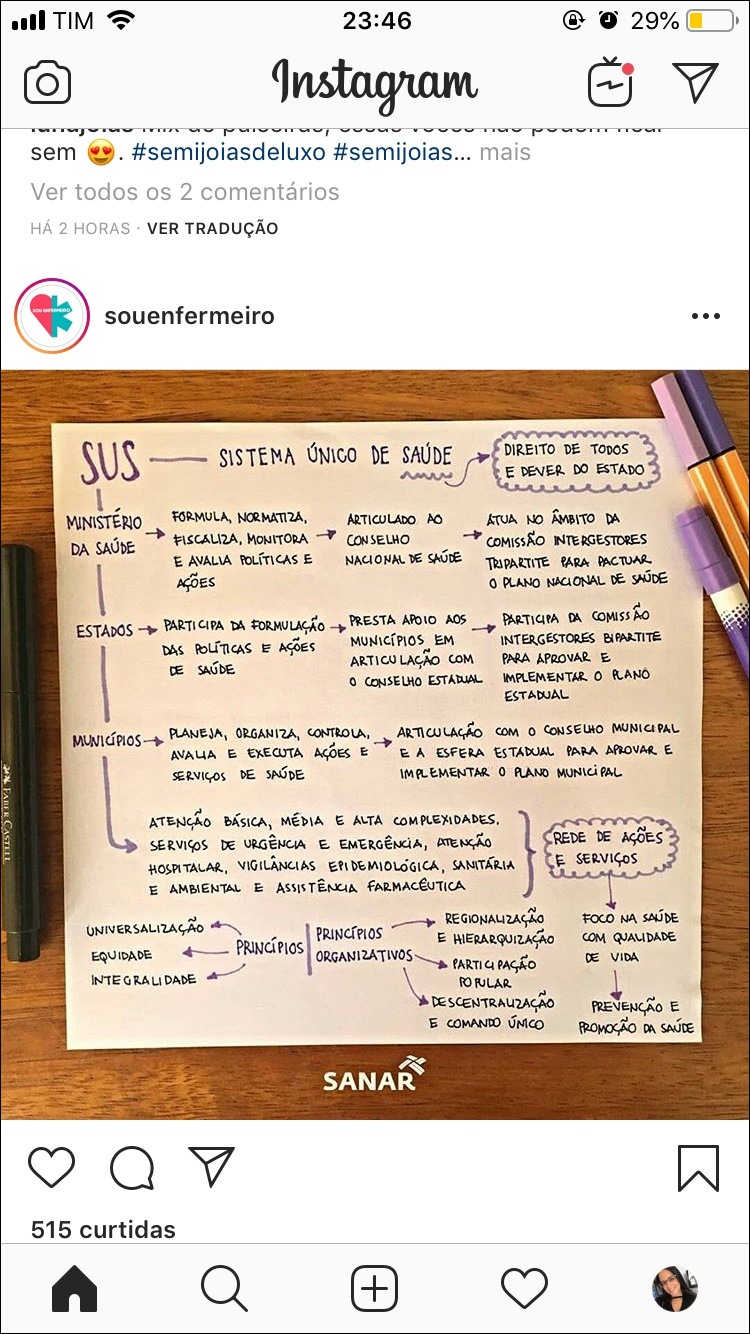 TIM
23:46
29%
Instagram
lanajoias Mix de pulseiras, essas vocês não podem ficar
sem 😍. #semijoiasdeluxo #semijoias... mais
Ver todos os 2 comentários
HÁ 2 HORAS · VER TRADUÇÃO
SOU ENFERMEIRO
souenfermeiro
SUS
SISTEMA ÚNICO DE SAÚDE
DIREITO DE TODOS
E DEVER DO ESTADO
MINISTÉRIO
DA SAÚDE
FORMULA, NORMATIZA,
FISCALIZA, MONITORA
E AVALIA POLÍTICAS E
AÇÕES
ARTICULADO AO
CONSELHO
NACIONAL DE SAÚDE
ATUA NO ÂMBITO DA
COMISSÃO INTERGESTORES
TRIPARTITE PARA PACTUAR
O PLANO NACIONAL DE SAÚDE
ESTADOS
PARTICIPA DA FORMULAÇÃO
DAS POLÍTICAS E AÇÕES
DE SAÚDE
PRESTA APOIO AOS
MUNICÍPIOS EM
ARTICULAÇÃO COM
O CONSELHO ESTADUAL
PARTICIPA DA COMISSÃO
INTERGESTORES BIPARTITE
PARA APROVAR E
IMPLEMENTAR O PLANO
ESTADUAL
MUNICÍPIOS
PLANEJA, ORGANIZA, CONTROLA,
AVALIA E EXECUTA AÇÕES E
SERVIÇOS DE SAÚDE
ARTICULAÇÃO COM O CONSELHO MUNICIPAL
E A ESFERA ESTADUAL PARA APROVAR E
IMPLEMENTAR O PLANO MUNICIPAL
ATENÇÃO BÁSICA, MÉDIA E ALTA COMPLEXIDADES,
SERVIÇOS DE URGÊNCIA E EMERGÊNCIA, ATENÇÃO
HOSPITALAR, VIGILÂNCIAS EPIDEMIOLÓGICA, SANITÁRIA
E AMBIENTAL E ASSISTÊNCIA FARMACÊUTICA
REDE DE AÇÕES
E SERVIÇOS
FOCO NA SAÚDE
COM QUALIDADE
DE VIDA
PREVENÇÃO E
PROMOÇÃO DA SAÚDE
UNIVERSALIZAÇÃO
EQUIDADE
INTEGRALIDADE
PRINCÍPIOS
PRINCÍPIOS
ORGANIZATIVOS
REGIONALIZAÇÃO
E HIERARQUIZAÇÃO
PARTICIPAÇÃO
POPULAR
DESCENTRALIZAÇÃO
E COMANDO ÚNICO
FABER CASTELL
SANAR
515 curtidas